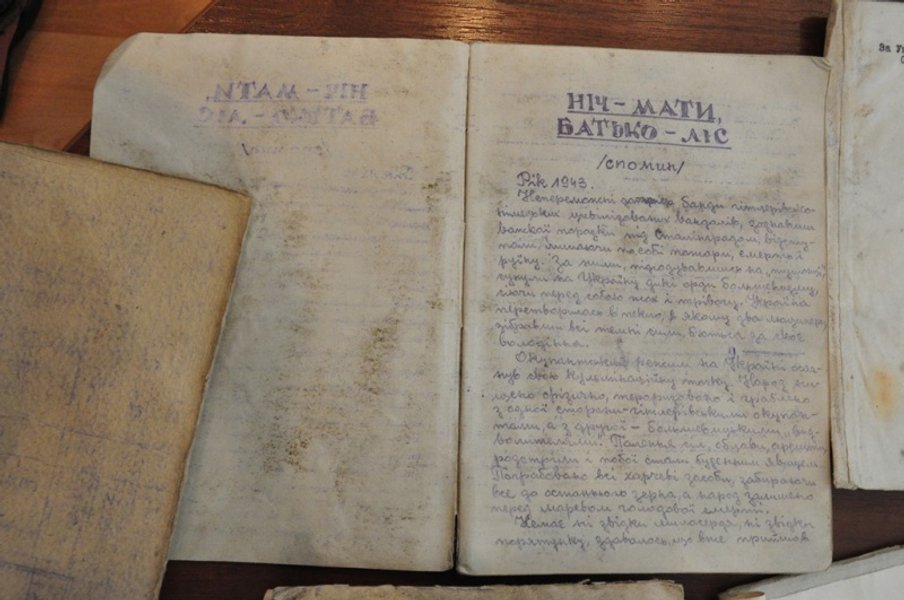 НІЧ – МАТИ,
БАТЬКО – ЛІС
/спомин/
Рік 1943.
Непереможні банди гітлерівсько-
німецьких цивілізованих вандалів, зазнавши
важкої поразки під Сталінградом, відсту-
пали, лишаючи по собі пожари, смерть і
руїну. За ними,
сунули на Україну дикі орди большевизму,
несучи перед собою жах і трівогу. Україна
перетворилась в пекло, в якому два
зібравши всі темні сили, бються за своє
володіння.
Окупантський режим на Україні осяг-
нув свою кульмінаційну точку. Народ ни-
щено фізично, тероризовано і граблено
з одної сторони – гітлерівськими окупан-
тами, а з другої – большевицькими „виз-
волителями". Палення сіл, облави, арешти,
розстріли і побої стали буденним явищем.
Пограбовано всі харчеві засоби, забираючи
все до останнього зерна, а народ залишено
перед маревом голодової смерті.
Немає ні звідки милосердя, ні звідки
порятунку, здавалось, що вже прийшов
За Ук